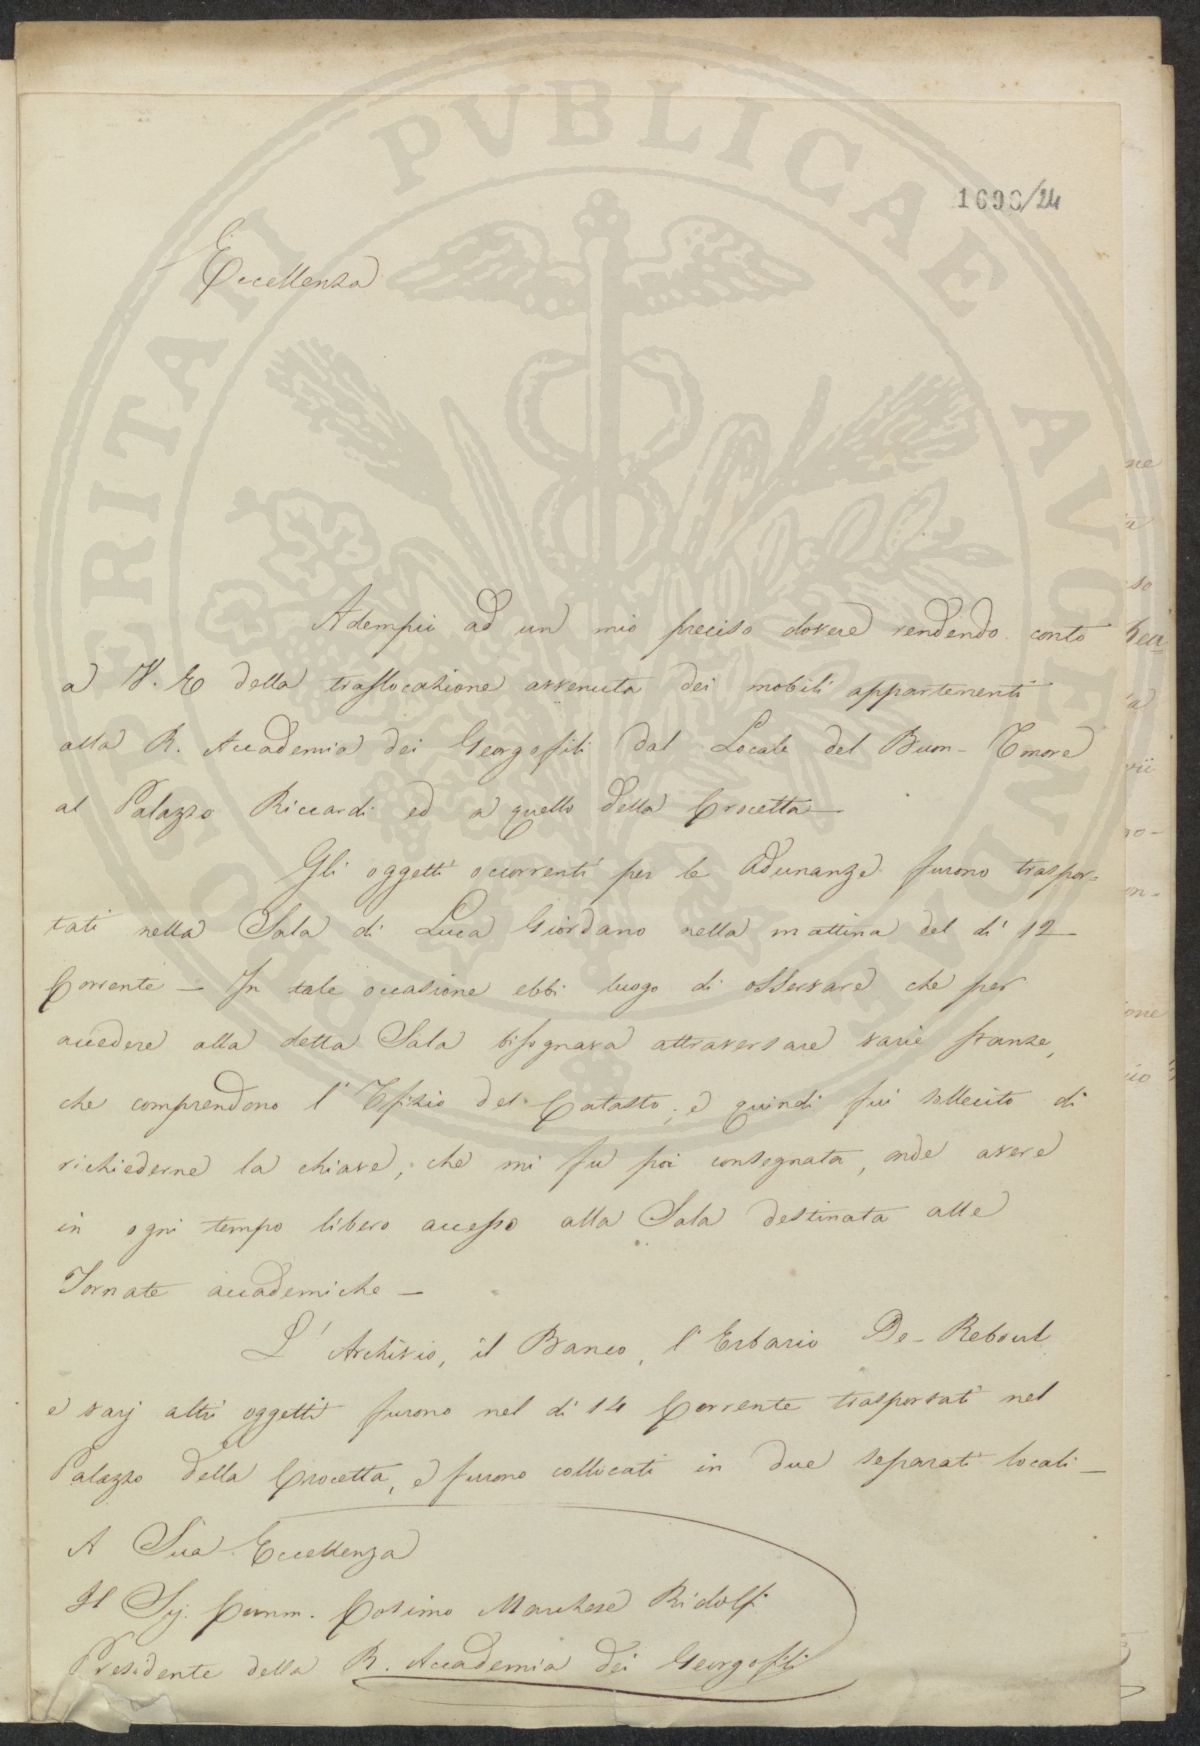 PROSPERITATI PVBLICAE AVGENDAE
1690/24
Eccellenza
Adempio ad un mio preciso dovere rendendo conto
a V. E della traslocazione avvenuta dei mobili appartenenti
alla R. Accademia dei Georgofili dal Locale del Buon-Umore
al Palazzo Riccardi ed a quello della Crocetta—
Gli oggetti occorrenti per le Adunanze furono traspor=
tati nella Sala di Luca Giordano nella mattina del dì 12
Corrente — In tale occasione ebbi luogo di osservare che per
accedere alla detta Sala bisognava attraversare varie stanze,
che comprendono l'Ufizio del Catasto; e quindi fui sollecito di
richiederne la chiave, che mi fu poi consegnata, onde avere
in ogni tempo libero accesso alla Sala destinata alle
Tornate accademiche —
L'Archivio, il Banco, l'Erbario De-Reboul
e varj altri oggetti furono nel dì 14 Corrente trasportati nel
Palazzo della Crocetta, e furono collocati in due separati locali—
A Sua Eccellenza
Il Sig. Comm. Cosimo Marchese Ridolfi
Presidente della R. Accademia dei Georgofili